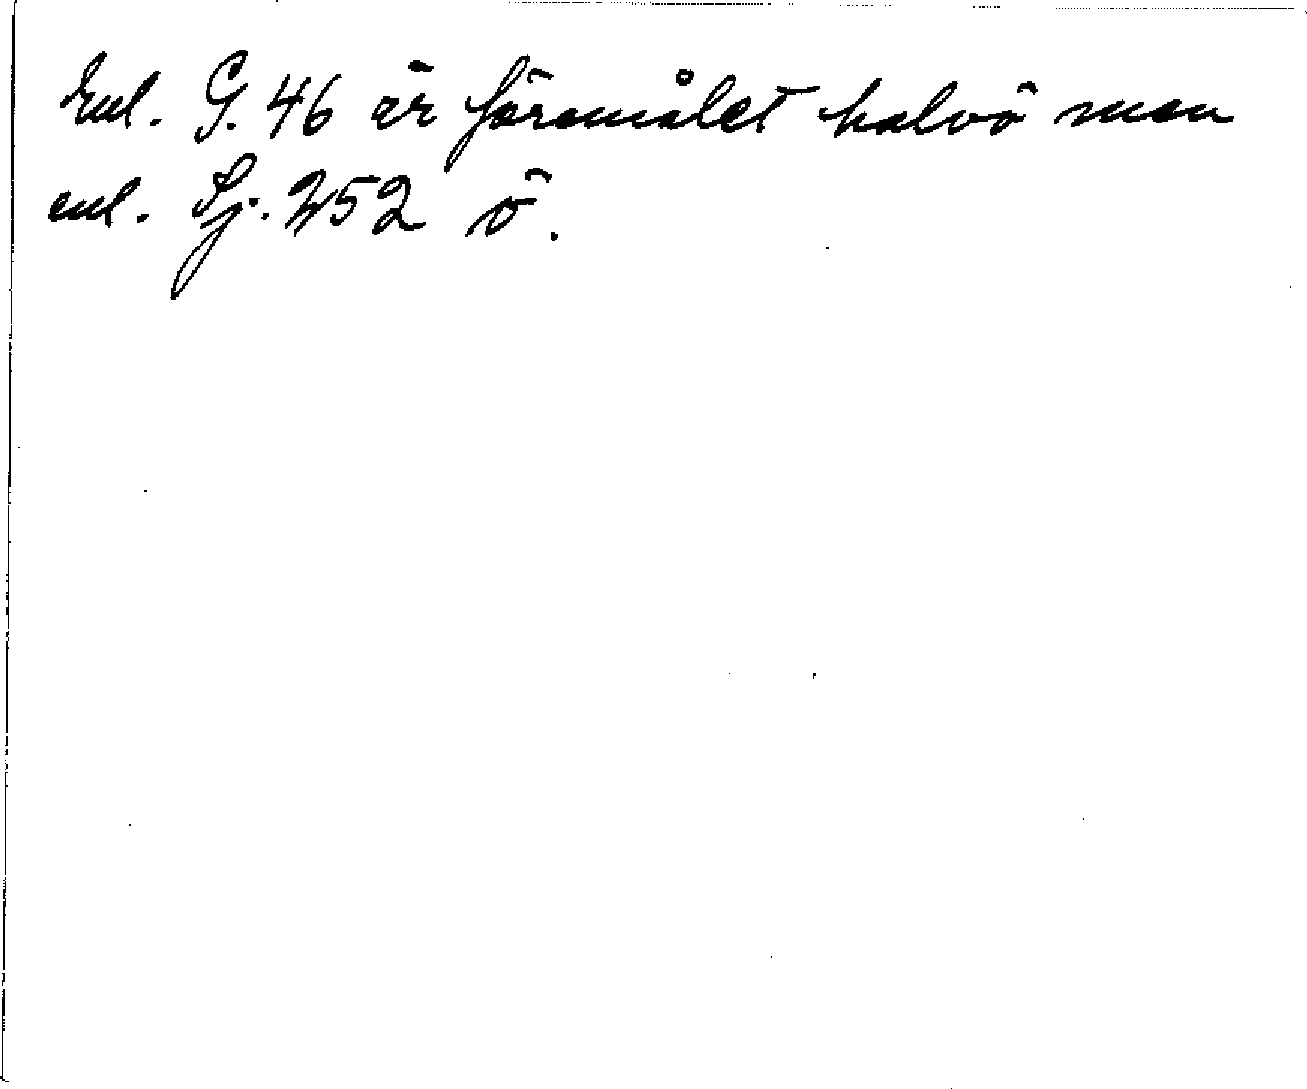 Enl. G. 46 är föremålet halvö men
enl. Sj. 252 ö.